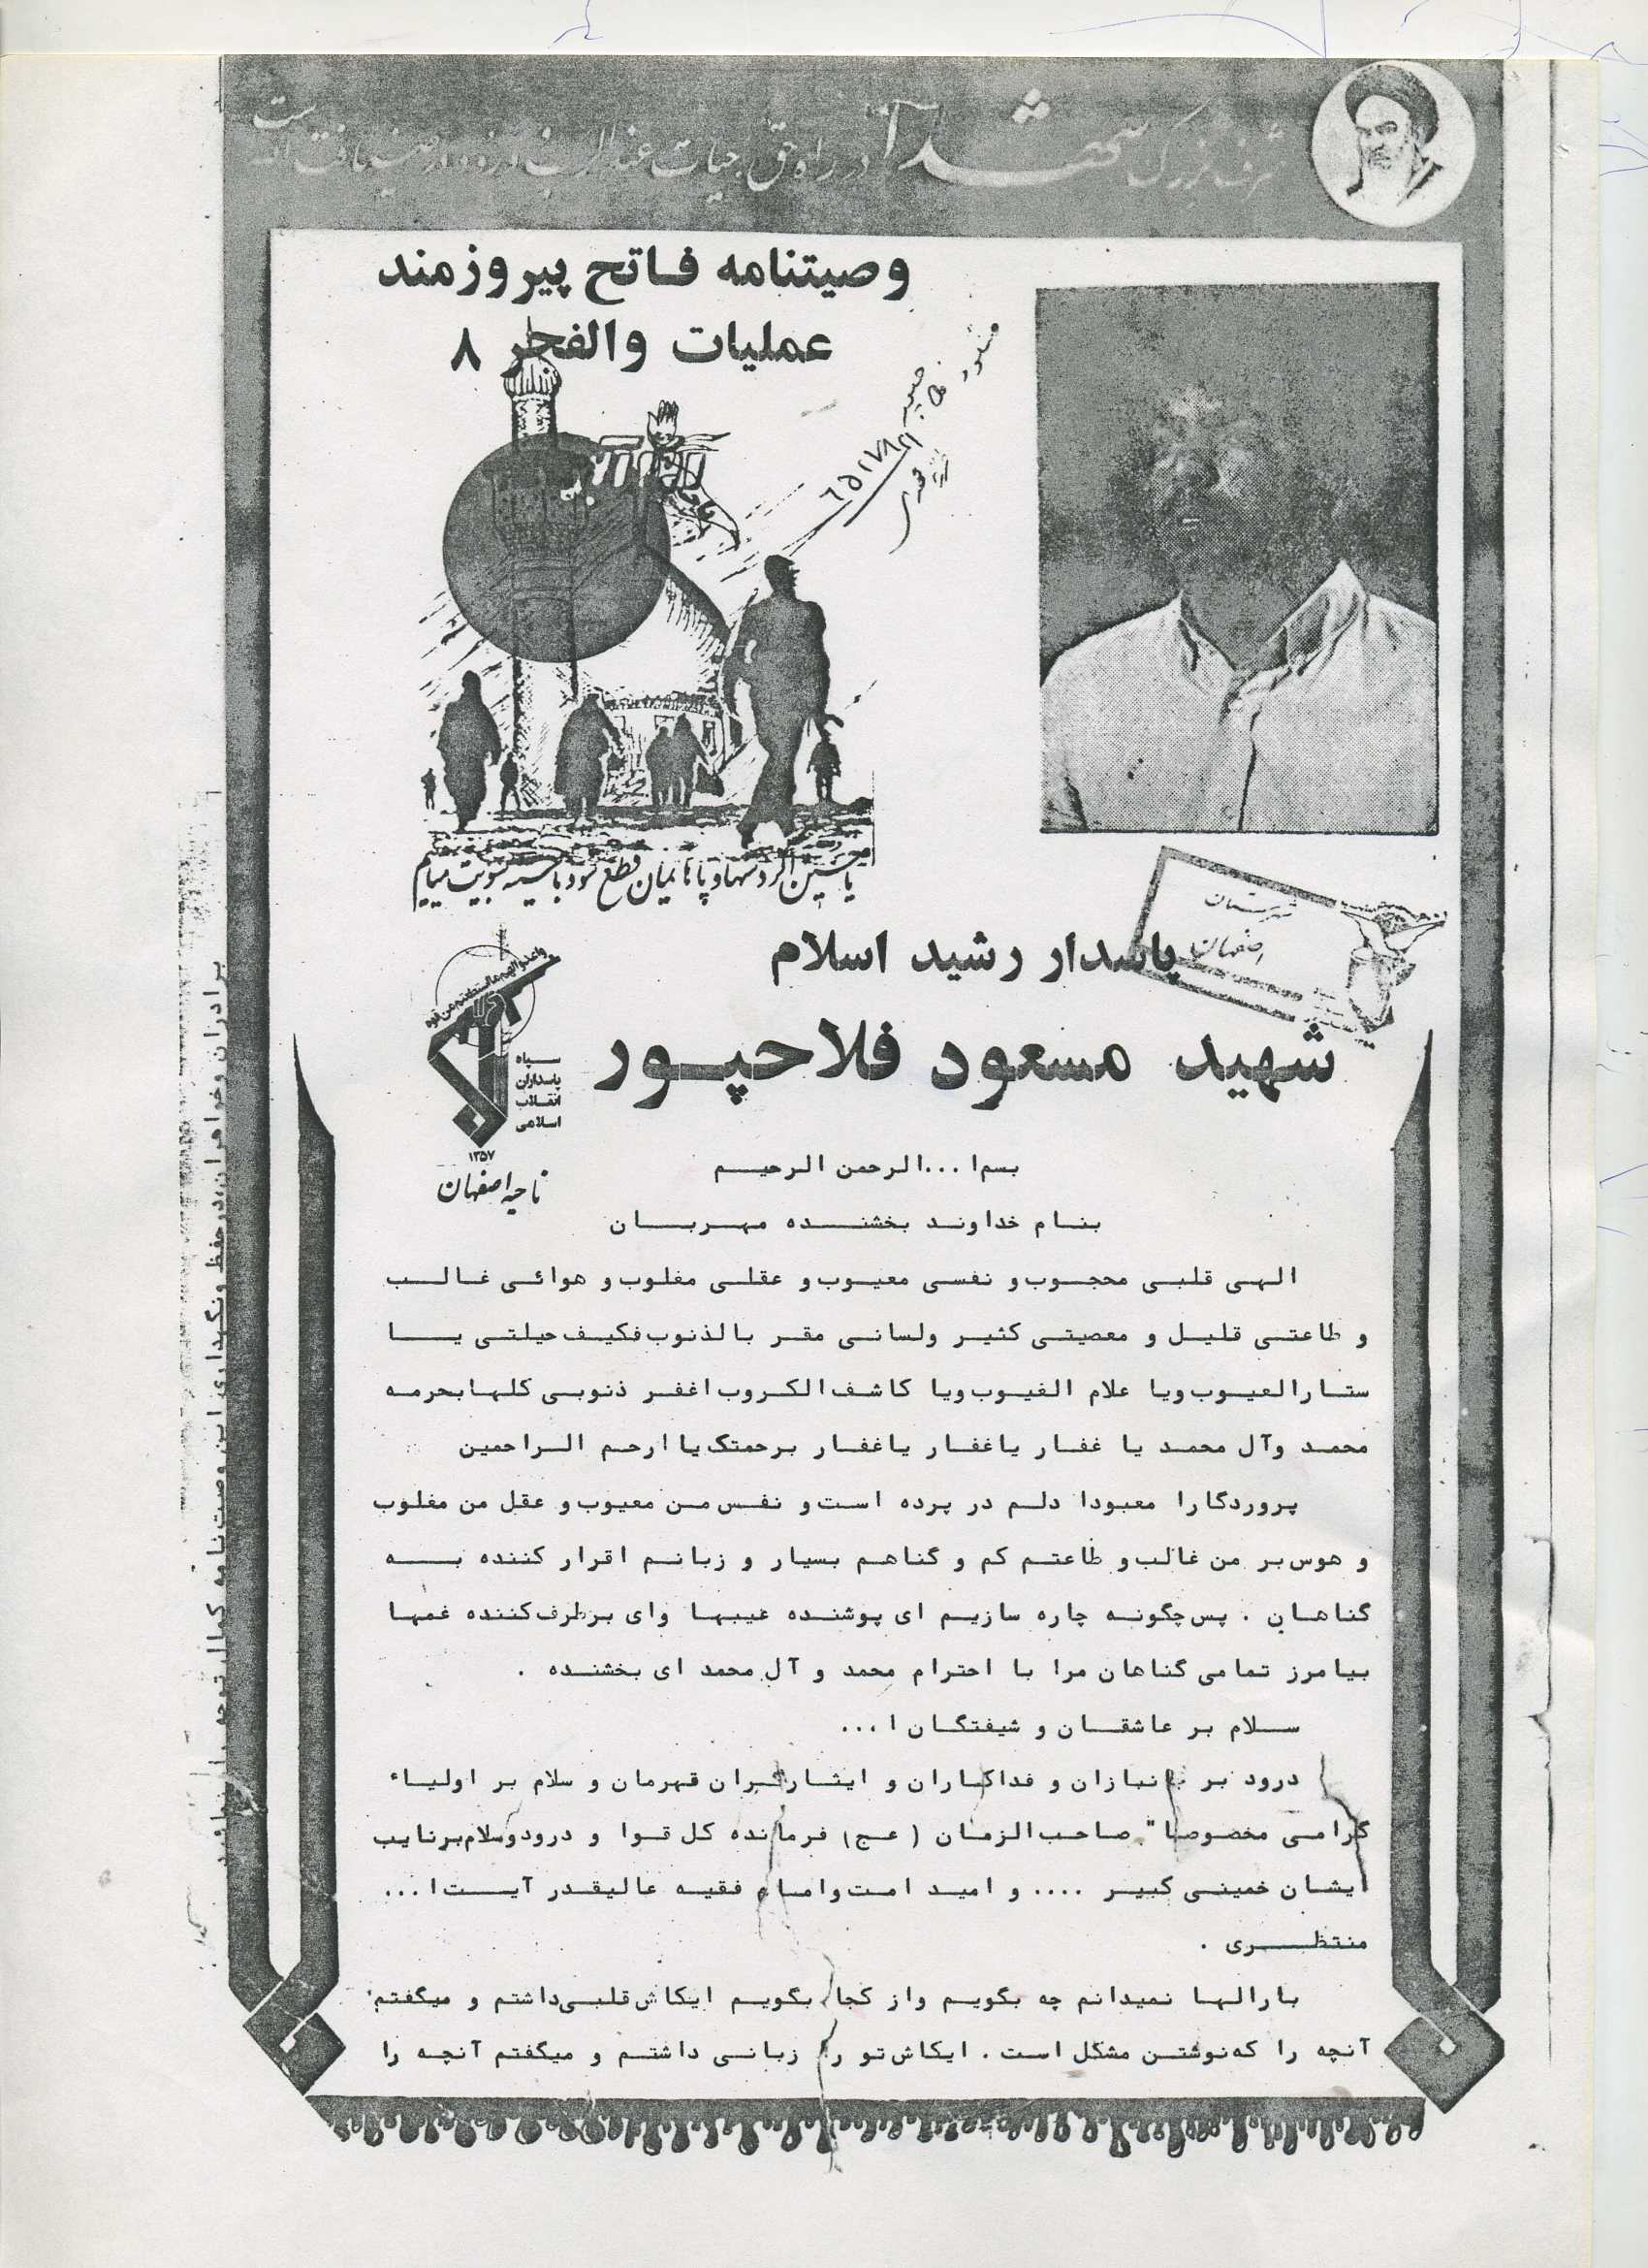 شرف بزرگ شهدا در راه حق حیات عندالرب و ورود در ضیافت الله است
وصیتنامه فاتح پیروزمند
عملیات والفجر ۸
یا حسین اگر دستها و پاهایمان قطع شود با سینه بسویت میایم
شهرستان
اصفهان
پاسدار رشید اسلام
شهید مسعود فلاحپور
واعدوالهم مااستطعتم من قوه
سپاه
پاسداران
انقلاب
اسلامی
۱۳۵۷
ناحیه اصفهان
بسم ا...الرحمن الرحیم
بنام خداوند بخشنده مهربان
الهی قلبی محجوب و نفسی معیوب و عقلی مغلوب و هوائی غالب
و طاعتی قلیل و معصیتی کثیر ولسانی مقر بالذنوب فکیف حیلتی یا
ستارالعیوب ویا علام الغیوب ویا کاشف الکروب اغفر ذنوبی کلها بحرمه
محمد وآل محمد یا غفار یاغفار یاغفار برحمتک یا ارحم الراحمین
پروردگارا معبودا دلم در پرده است و نفس من معیوب و عقل من مغلوب
و هوس بر من غالب و طاعتم کم و گناهم بسیار و زبانم اقرار کننده به
گناهان . پس چگونه چاره سازیم ای پوشنده عیبها وای برطرف کننده غمها
بیامرز تمامی گناهان مرا با احترام محمد و آل محمد ای بخشنده .
سلام بر عاشقان و شیفتگان ا...
درود بر جانبازان و فداکاران و ایثارگران قهرمان و سلام بر اولیاء
گرامی مخصوصا" صاحب الزمان (عج) فرمانده کل قوا و درود وسلام برنایب
ایشان خمینی کبیر .... و امید امت وامام فقیه عالیقدر آیت ا...
منتظری .
بارالها نمیدانم چه بگویم واز کجا بگویم ایکاش قلبی داشتم و میگفتم
آنچه را که نوشتن مشکل است . ایکاش تو را زبانی داشتم و میگفتم آنچه را
برادران وخواهران،درحفظ ونگهداری این وصیت نامه کمال توجه را بنمایید